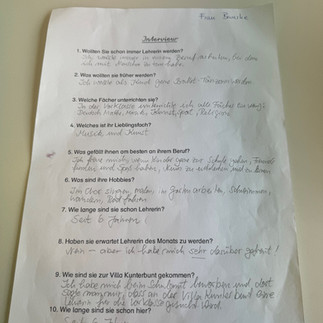 Frau
Interview
1. Wollten Sie schon immer Lehrerin werden?
Ich wollte immer in einem Beruf arbeiten, bei dem
ich mit Kindern zu tun habe.
2. Was wollten sie früher werden?
Ich wollte als Kind gern Ballet-Tänzerin werden.
3. Welche Fächer unterrichten sie?
In der Vorklasse unterrichte ich alle Fächer
Deutsch, Mathe, Musik, Kunst, Sport, Religion.
4. Welches ist ihr Lieblingsfach?
Musik und Kunst
5. Was gefällt ihnen am besten an ihrem Beruf?
Ich freue mich, wenn Kinder gern zur Schule gehen, Freunde
finden und Spaß haben, Neues zu entdecken und zu lernen
6. Was sind ihre Hobbies?
Im Chor singen, malen, in Garten arbeiten,
Rad fahren
7. Wie lange sind sie schon Lehrerin?
Seit 6 Jahren
8. Haben sie erwartet Lehrerin des Monats zu werden?
Nein - aber ich habe mich sehr darüber gefreut!
9. Wie sind sie zur Villa Kunterbunt gekommen?
Ich habe mich beim Schulamt beworben und dort
sagte man mir, daß an der Villa Kunterbunt eine
für die Vorklasse gesucht wird.
10. Wie lange sind sie schon hier?